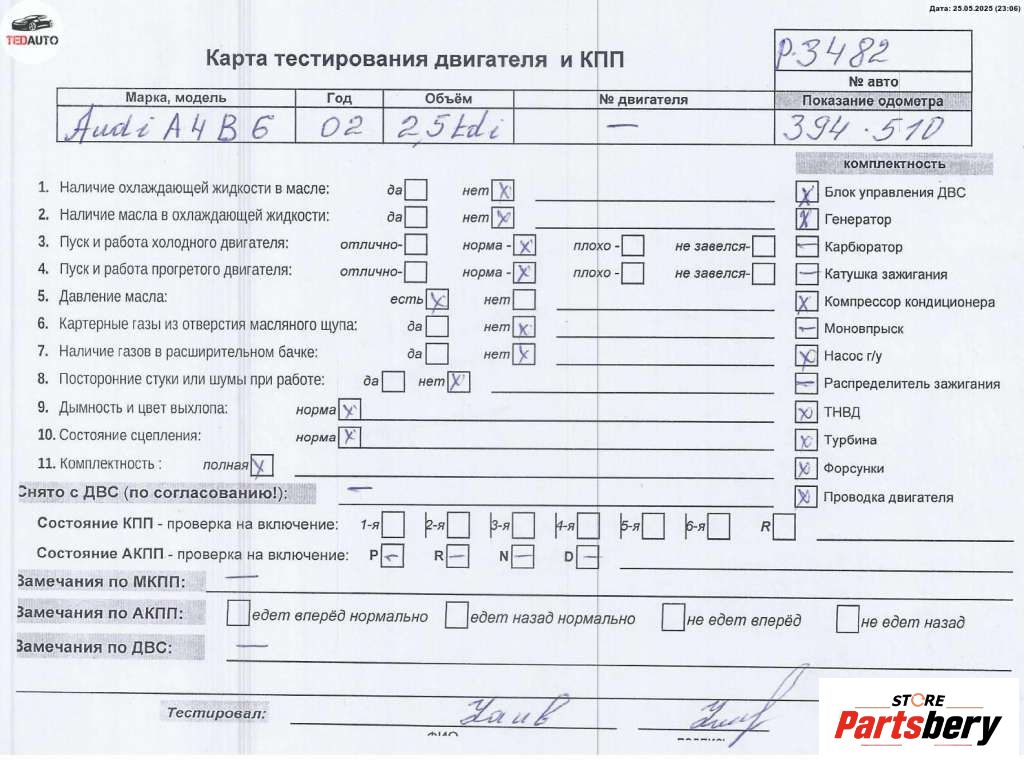 Дата: 25.05.2025 (23:06)
TEDAUTO
Карта тестирования двигателя и КПП
р.3482
№ авто
Марка, модель Год Объём № двигателя Показание одометра
Audi A4 B6 02 2,5 tdi — 394.510
комплектность
1. Наличие охлаждающей жидкости в масле: да нет x
2. Наличие масла в охлаждающей жидкости: да нет x
3. Пуск и работа холодного двигателя: отлично- норма - x плохо - не завелся-
4. Пуск и работа прогретого двигателя: отлично- норма - x плохо - не завелся-
5. Давление масла: есть x нет
6. Картерные газы из отверстия масляного щупа: да нет x
7. Наличие газов в расширительном бачке: да нет x
8. Посторонние стуки или шумы при работе: да нет x
9. Дымность и цвет выхлопа: норма x
10. Состояние сцепления: норма x
11. Комплектность : полная x
x Блок управления ДВС
x Генератор
— Карбюратор
— Катушка зажигания
x Компрессор кондиционера
— Моновпрыск
x Насос г/у
— Распределитель зажигания
x ТНВД
x Турбина
x Форсунки
x Проводка двигателя
Снято с ДВС (по согласованию!): —
Состояние КПП - проверка на включение: 1-я 2-я 3-я 4-я 5-я 6-я R
Состояние АКПП - проверка на включение: P — R — N — D —
Замечания по МКПП: —
Замечания по АКПП: едет вперёд нормально едет назад нормально не едет вперёд не едет назад
Замечания по ДВС: —
Тестировал:
ФИО
подпись
STORE
Partsbery